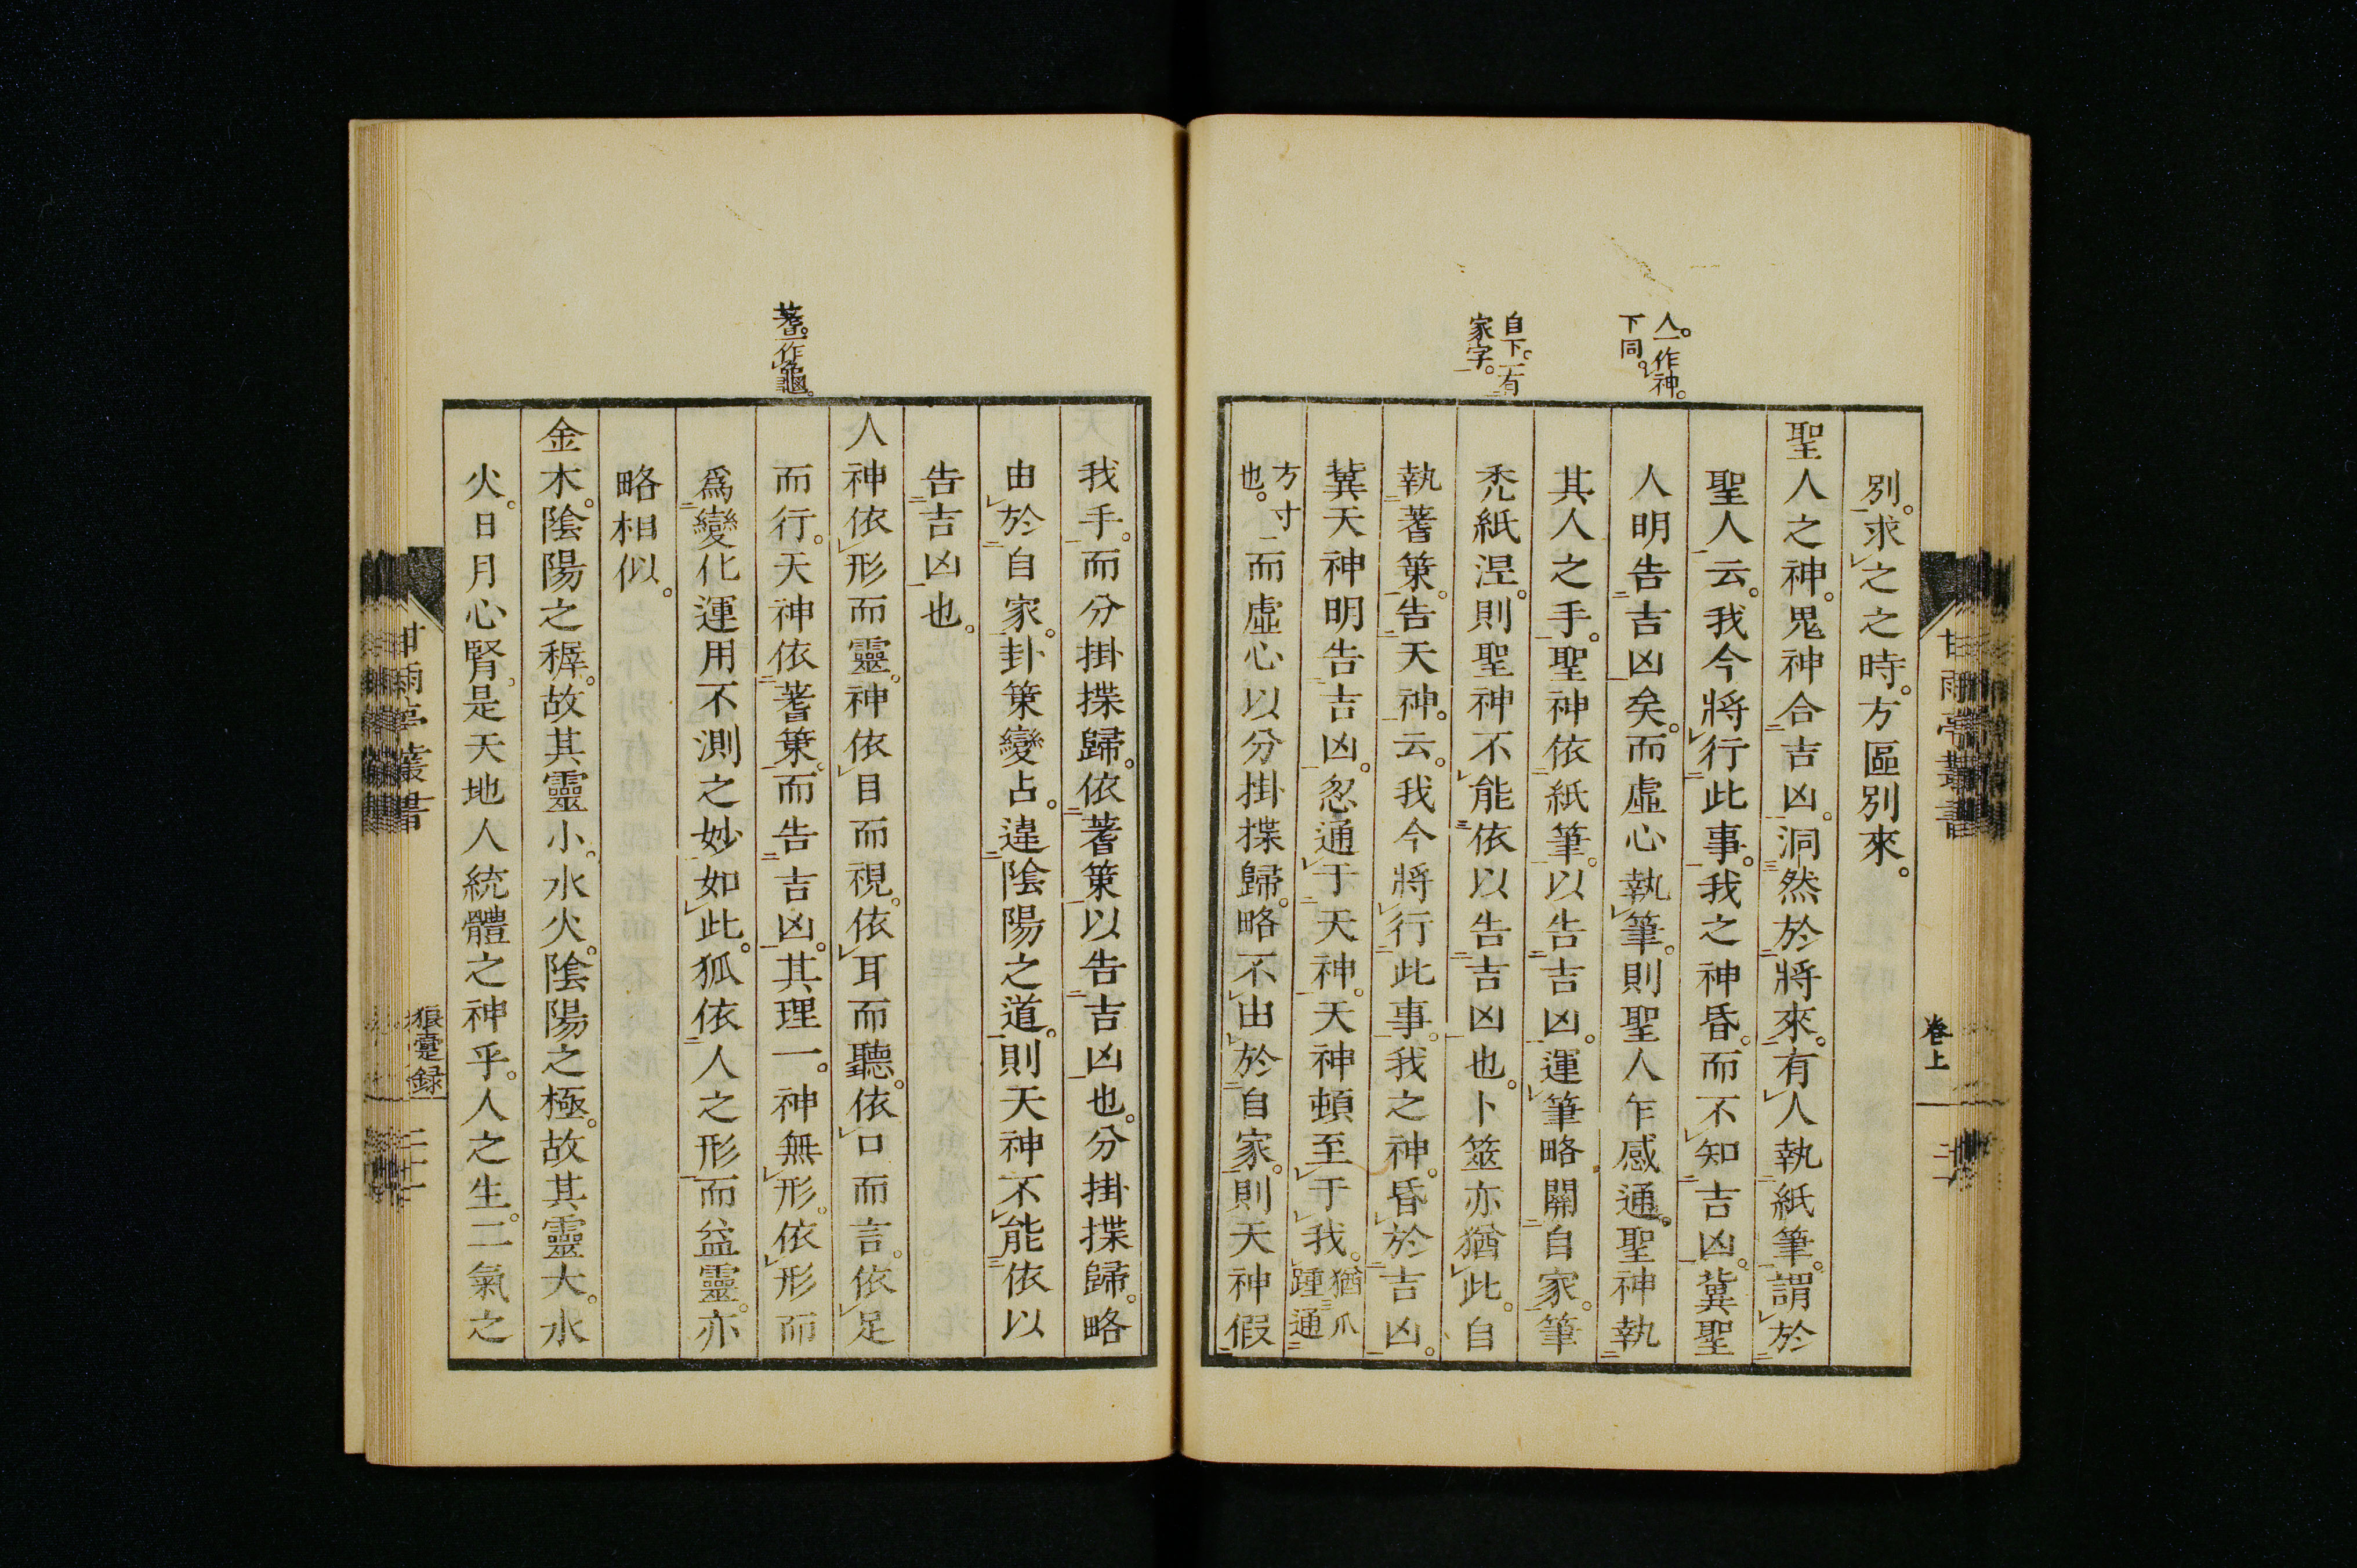 人。一作神。
下同。
自下。一有
家字。
別。求之之時。方區別來。
聖人之神。鬼神合吉凶。洞然於將來。有人執紙筆。謂於
聖人云。我今將行此事。我之神昏。而不知吉凶。冀聖
人明告吉凶矣。而虛心執筆。則聖人乍感通。聖神執
其人之手。聖神依紙筆。以告吉凶。運筆略關自家。筆
禿紙涅。則聖神不能依以告吉凶也。卜筮亦猶此。自
執蓍策。告天神。云。我今將行此事。我之神。昏於吉凶。
冀天神明告吉凶。忽通于天神。天神頓至于我。猶爪踵通
方寸也。而虛心以分掛揲歸。略不由於自家。則天神假
甘雨亭叢書
卷上
蓍。一作龜。
我手。而分掛揲歸。依蓍策以告吉凶也。分掛揲歸。略
由於自家。卦策變占。違陰陽之道。則天神不能依以
告吉凶也。
人神依形而靈。神依目而視。依耳而聽。依口而言。依足
而行。天神依蓍策。而告吉凶。其理一。神無形。依形而
爲變化運用不測之妙如此。狐依人之形而益靈。亦
略相似。
金木。陰陽之稺。故其靈小。水火。陰陽之極。故其靈大。水
火。日月心腎。是天地人統體之神乎。人之生。二氣之
甘雨亭叢書
狼疐録